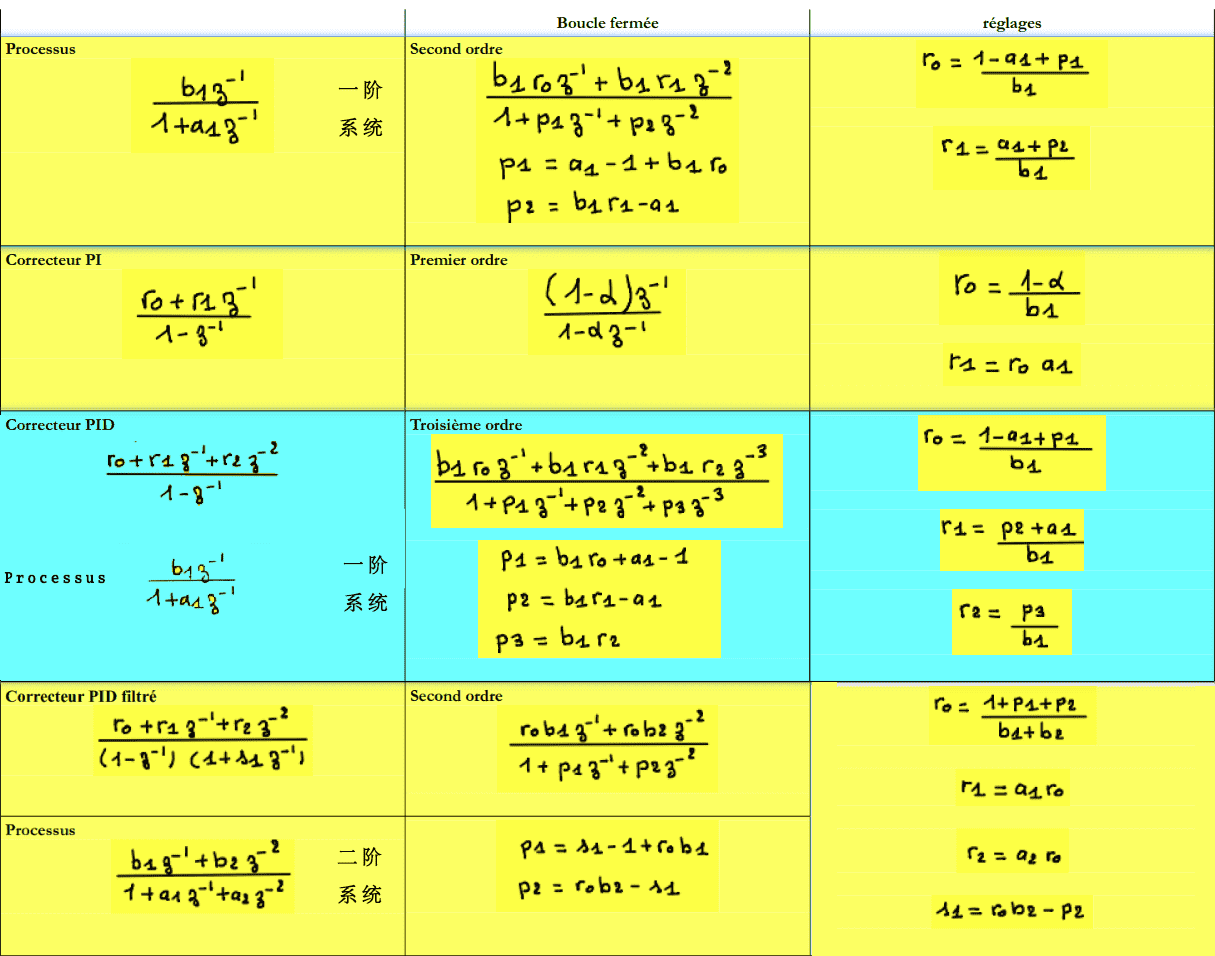 Boucle fermée
réglages
Processus
b1 z⁻¹ / 1+a1 z⁻¹
一阶
系统
Second ordre
b1 r0 z⁻¹ + b1 r1 z⁻² / 1+p1 z⁻¹+p2 z⁻²
p1 = a1 - 1 + b1 r0
p2 = b1 r1 - a1
r0 = 1-a1+p1 / b1
r1 = a1+p2 / b1
Correcteur PI
r0 + r1 z⁻¹ / 1 - z⁻¹
Premier ordre
(1-α)z⁻¹ / 1-αz⁻¹
r0 = 1-α / b1
r1 = r0 a1
Correcteur PID
r0+r1 z⁻¹+r2 z⁻² / 1-z⁻¹
Processus
b1 z⁻¹ / 1+a1 z⁻¹
一阶
系统
Troisième ordre
b1 r0 z⁻¹+b1 r1 z⁻²+b1 r2 z⁻³ / 1+p1 z⁻¹+p2 z⁻²+p3 z⁻³
p1 = b1 r0+a1-1
p2 = b1 r1-a1
p3 = b1 r2
r0 = 1-a1+p1 / b1
r1 = p2+a1 / b1
r2 = p3 / b1
Correcteur PID filtré
r0+r1 z⁻¹+r2 z⁻² / (1-z⁻¹) (1+s1 z⁻¹)
Second ordre
r0 b1 z⁻¹+r0 b2 z⁻² / 1+p1 z⁻¹+p2 z⁻²
r0 = 1+p1+p2 / b1+b2
r1 = a1 r0
Processus
b1 z⁻¹+b2 z⁻² / 1+a1 z⁻¹+a2 z⁻²
二阶
系统
p1 = s1-1+r0 b1
p2 = r0 b2 - s1
r2 = a2 r0
s1 = r0 b2 - p2